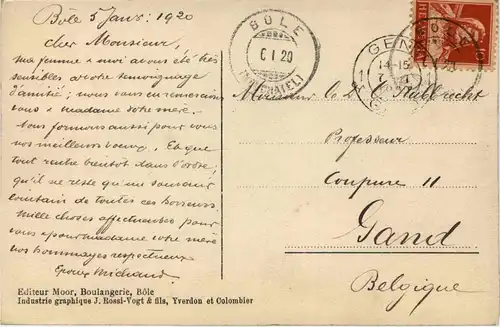 Bôle 5 Janv: 1920
cher Monsieur,
ma femme & moi avons été très
sensibles à votre témoignage
d'amitié; nous vous en remercions
vous & madame votre mère.
Nous formons aussi pour vous
nos meilleurs voeux. Et que
tout rentre bientôt dans l'ordre,
qu'il ne reste qu'un souvenir
lointain de toutes ces horreurs
Mille choses affectueuses pour
vous & pour madame votre mère
nos hommages respectueux
Michaud
Editeur Moor, Boulangerie, Bôle
Industrie graphique J. Rossi-Vogt & fils, Yverdon et Colombier
BÔLE
6 I 20
(NEUCHATEL)
GENT
14-15
1 1
BÔLE
Monsieur
Professeur
Coupure 11
Gand
Belgique